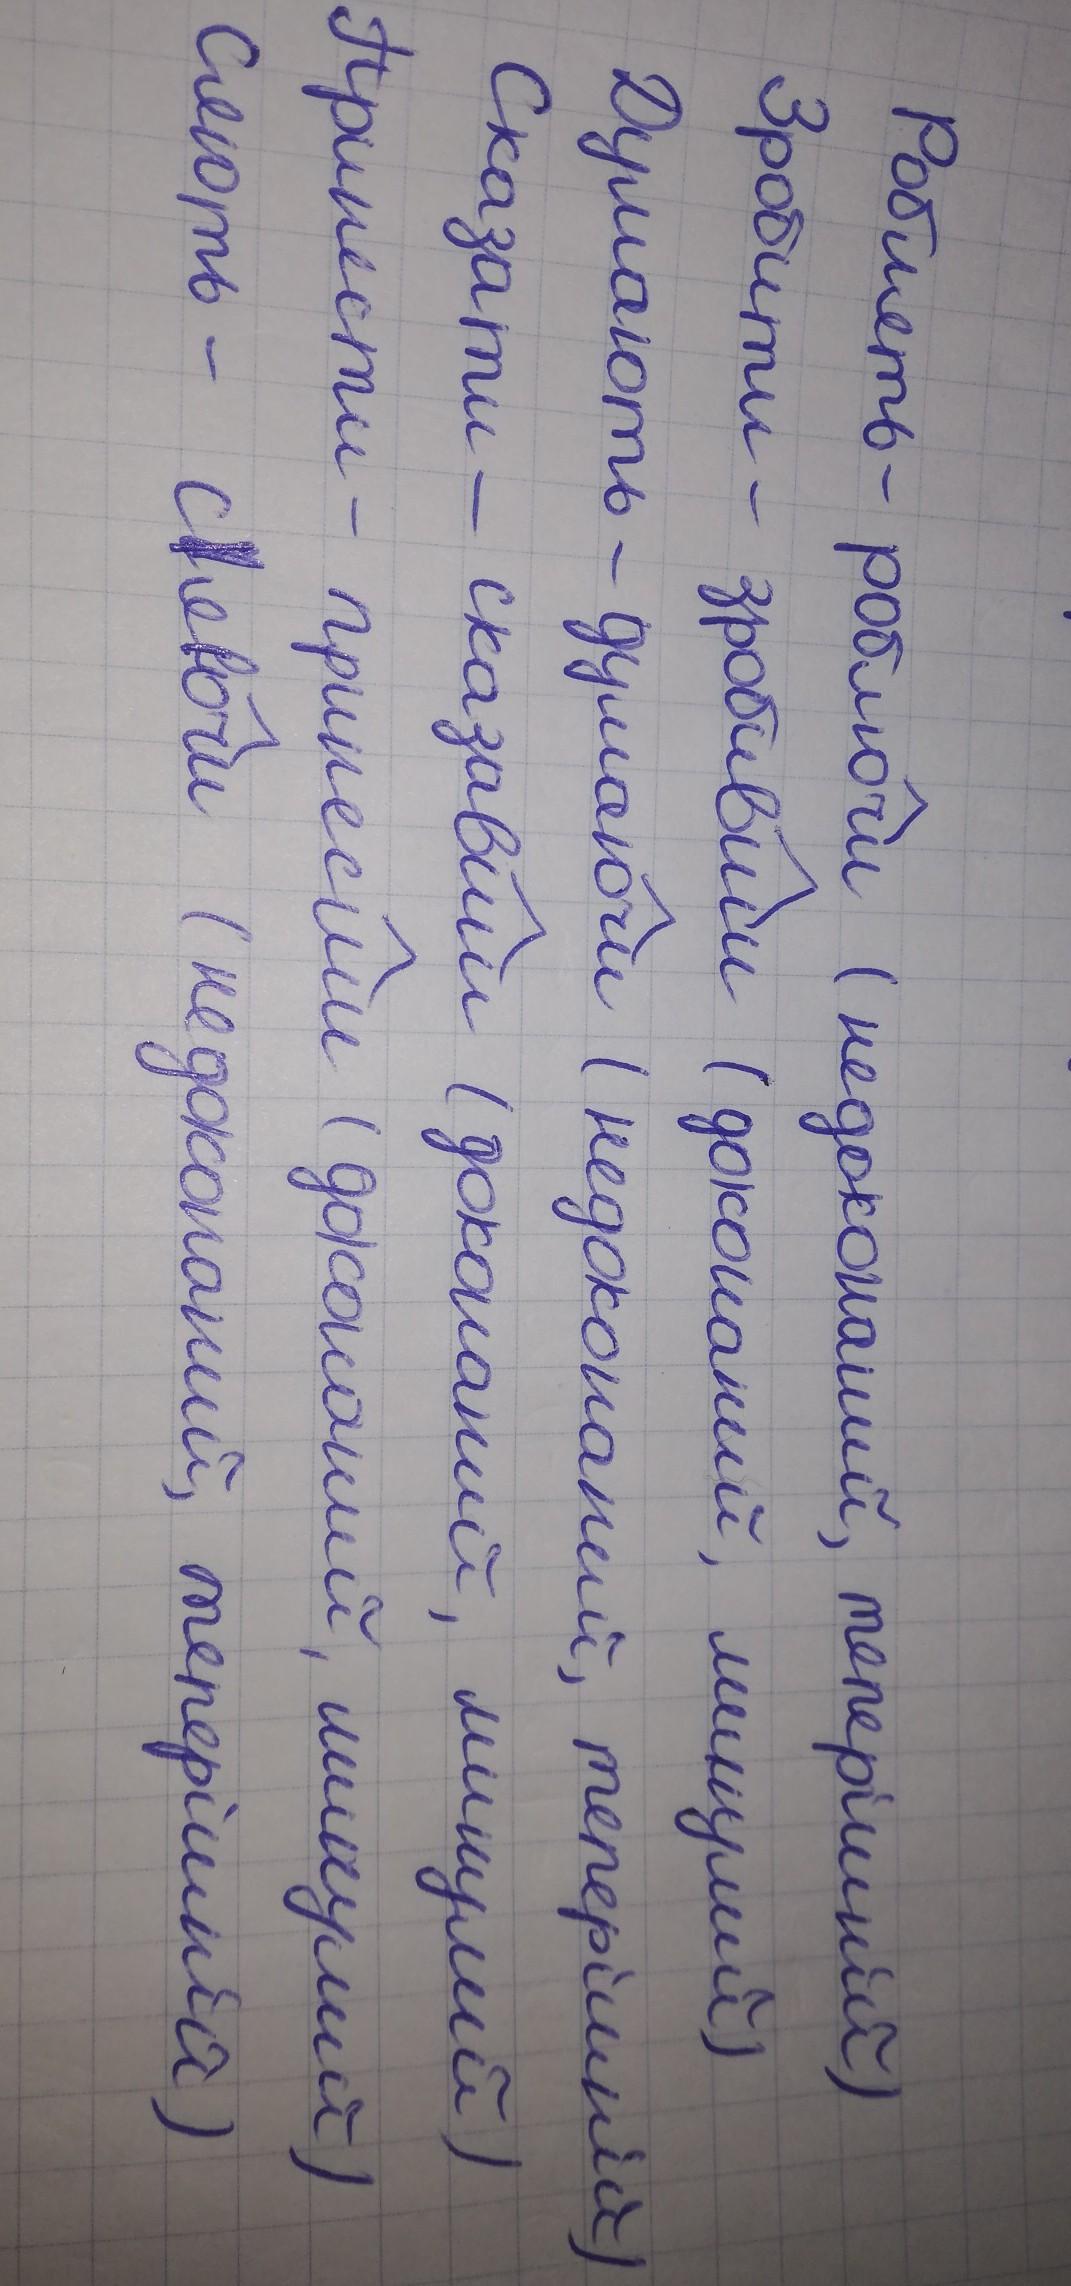 Роблеть - роблючи (недоконаний, теперішній)
Зробити - зробивши (доконаний, минулий)
Думають - думаючи (недоконаний, теперішній)
Сказати - сказавши (доконаний, минулий)
Принести - принесши (доконаний, минулий)
Сіють - сіючи (недоконаний, теперішній)